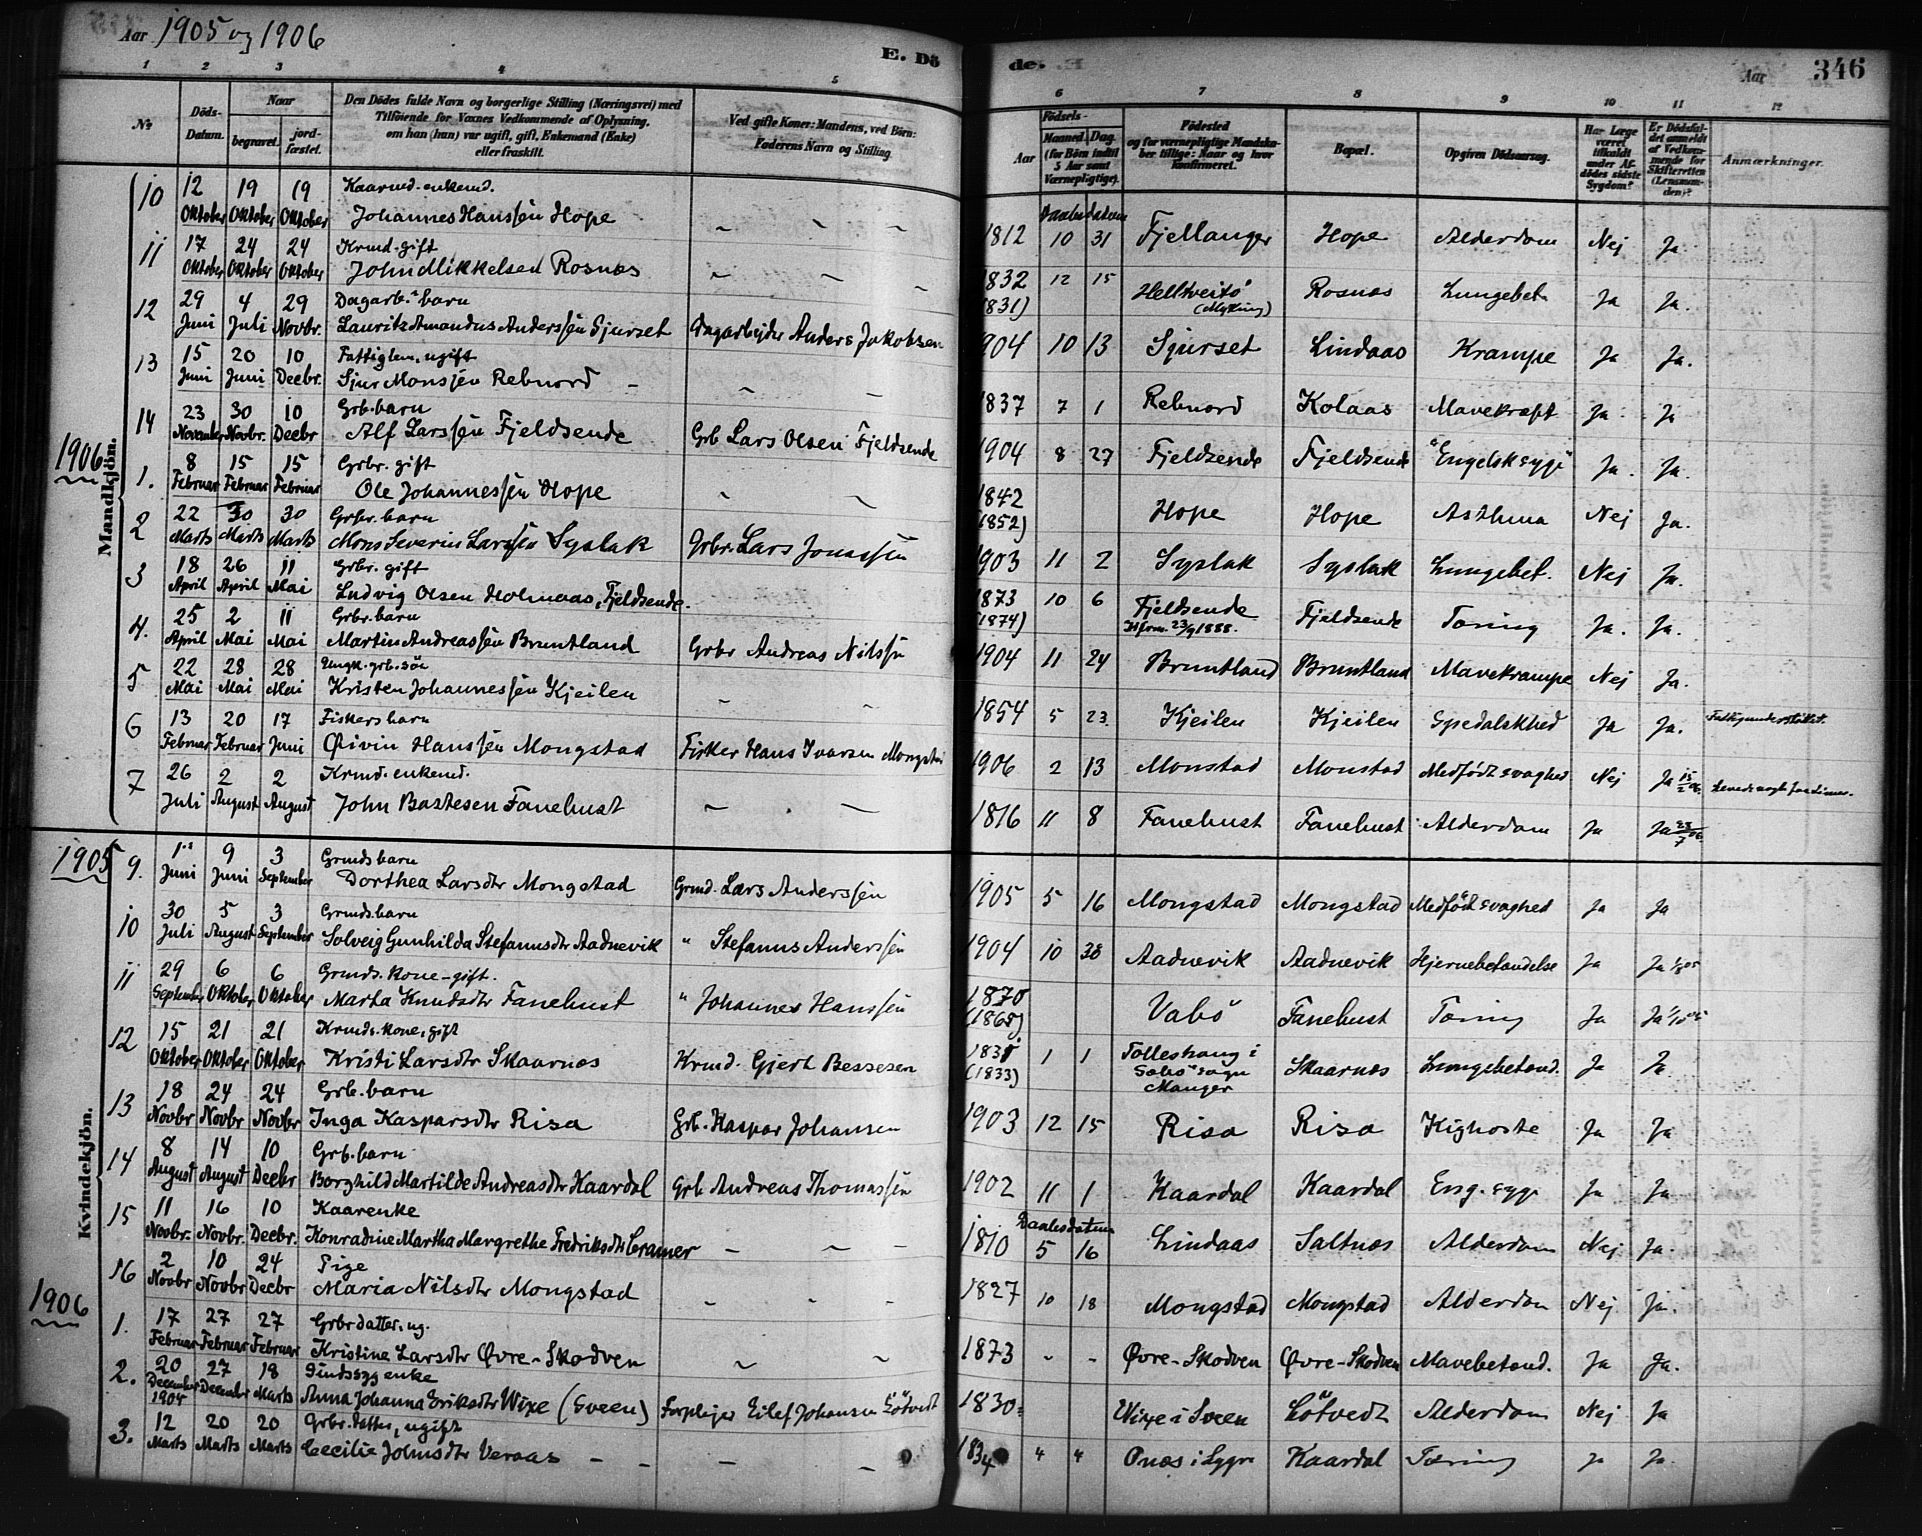 Aar 1905 og 1906
E. Dö
de.
Aar
346
1 2 3 4 5
6 7 8 9 10 11 12
No
Döds-Datum.
Naar
begravet.
jord-fæstet.
Den Dödes fulde Navn og borgerlige Stilling (Næringsvei) med
Tilföiende for Voxnes Vedkommende af Oplysning,
om han (hun) var ugift, gift, Enkemand (Enke)
eller fraskilt.
Ved gifte Koner: Mandens, ved Börn:
Faderens Navn og Stilling.
Födsels-
Aar
Maaned. Dag.
(for Börn indtil
5 Aar samt
Værnepligtige).
Födested
og for værnepligtige Mandska-
ber tillige: Naar og hvor
konfirmeret.
Bopæl.
Opgiven Dödsaarsag.
Har Læge
været
tilkaldt
under Af-
dödes sidste
Sygdom?
Er Dödsfal-
det anmeldt
af Vedkom-
mende for
Skifteretten
(Lensman-
den)?
Anmærkninger.
Mandkjön.
10 12 Oktober 19 Oktober 19 Oktober Kaarmd. enkemd.
Johannes Hanssen Hope 1812 Daabsdatum 10 31 Fjellanger Hope Alderdom Nej Ja
11 17 Oktober 24 Oktober 24 Oktober Krmd. gift
John Mikkelsen Rosnæs 1832 (1831) 12 15 Helltveitö (Myking) Rosnæs Lungebet. Ja Ja.
12 29 Juni 4 Juli 29 Novbr. Dagarb. barn
Lauritz Amandus Anderssen Sjurset Dagarbejder Anders Jakobsen 1904 10 13 Sjurset Lindaas Krampe Ja Ja.
13 15 Juni 20 Juni 10 Decbr. Fattiglem, ugift
Sjur Monssen Rebnord 1837 7 1 Rebnord Kolaas Mavekræft Ja. Ja
14 23 November 30 Novbr. 10 Decbr Grb. barn
Alf Larssen Fjeldsende Grb Lars Olsen Fjeldsende 1904 8 27 Fjeldsende Fjeldsende "Engelsk syge" Ja. Ja.
1906
1. 8 Februar 15 Februar 15 Februar Grbr. gift
Ole Johannessen Hope 1842 (1852) Hope Hope Asthma Nej Ja.
2 22 Marts 30 Marts 30 Marts Grbr. barn
Mons Severin Larssen Syslak Grbr. Lars Jonassen 1903 11 2 Syslak Syslak Lungebet. Nej Ja.
3 18 April 26 April 11 Mai Grbr. gift
Ludvig Olsen Holmaas, Fjeldsende. 1873 (1874) 10 6 Fjeldsende Kfrm. 23/9 1888. Fjeldsende Tæring Ja. Ja.
4. 25 April 2 Mai 11 Mai Grbr. barn
Martin Andreassen Bruntland Grbr Andreas Nilssen 1904 11 24 Bruntland Bruntland Mavekrampe Nej Ja.
5 22 Mai 28 Mai 28 Mai Ungk. grb. søn
Kristen Johannessen Kjeilen 1854 5 23 Kjeilen Kjeilen Spedalskhed Ja Ja. Fattigunderstöttet.
6 13 Februar 20 Februar 17 Juni Fiskers barn
Øivin Hanssen Mongstad Fisker Hans Ivarsen Mongstad 1906 2 13 Monstad Monstad Medfödt svaghed Nej Ja 15/2 06.
7 26 Juli 2 August 2 August Krmd. enkemd.
John Bastesen Fanehust 1816 11 8 Fanehust Fanehust Alderdom Ja Ja 28/7 06.
Kvindekjön.
1905
9. 1. Juni 9 Juni 3 September Grmds barn
Dorthea Larsdtr Mongstad Grmd. Lars Anderssen 1905 5 16 Mongstad Mongstad Medfödt svaghed Ja Ja
10 30 Juli 5 August 3 September Grmds. barn
Solveig Gunhilda Stefanusdtr Aadnevik " Stefanus Anderssen 1904 10 30 Aadnevik Aadnevik Hjernebetændelse Ja Ja
11 29 September 6 Oktober 6 Oktober Grmds. kone - gift.
Marta Knudsdtr Fanehust " Johannes Hanssen 1870 (1868) Vabö Fanehust Tæring Ja Ja
12 15 Oktober 21 Oktober 21 Oktober Krmds. kone, gift
Kristi Larsdtr Skaarnæs Krmd. Gjert Bessesen (1833) 1 1 Tolleshaug i Sæbö sogn Manger Skaarnæs Lungebetænd. Ja Ja
13 18 Novbr 24 Novbr 24 Novbr Grb. barn
Inga Kaspersdtr Risa Grb. Kaspar Johansen 1903 12 15 Risa Risa Kighoste Ja Ja
14 8 August 14 August 10 Decbr Grb. barn
Borghild Martilde Andreasdtr Kaardal Grb Andreas Thomassen 1902 11 1 Kaardal Kaardal Eng. syge Ja Ja
15 11 Novbr. 16 Novbr. 10 Decbr. Kaarenke
Konradine Martha Margrethe Fredriksdtr Cramer 1810 Daabsdatum 5 16 Lindaas Saltnæs Alderdom Nej Ja.
16 2 Novbr 10 Novbr 24 Decbr Pige
Maria Nilsdtr Mongstad 1827 10 18 Mongstad Mongstad Alderdom Nej Ja.
1906
1. 17 Februar 27 Februar 27 Februar Grbr datter, ug.
Kristine Larsdtr Øvre-Skodven 1873 - - Øvre-Skodven Øvre-Skodven Mavebetænd. Ja Ja.
2. 20 December 1905 27 December 18 Marts Sindssyg enke
Anna Johanna Eriksdtr Wixe (Sveen) Forplejer Eilef Johansen Lötvedt 1830 Wixe i Sveen Lötvedt Alderdom Nej Ja
3. 12 Marts 20 Marts 20 Marts Grbr. datter, ugift
Cecilie Johnsdtr Veraas 1834 " " Onæs i Lygre Kaardal Tæring Ja Ja.